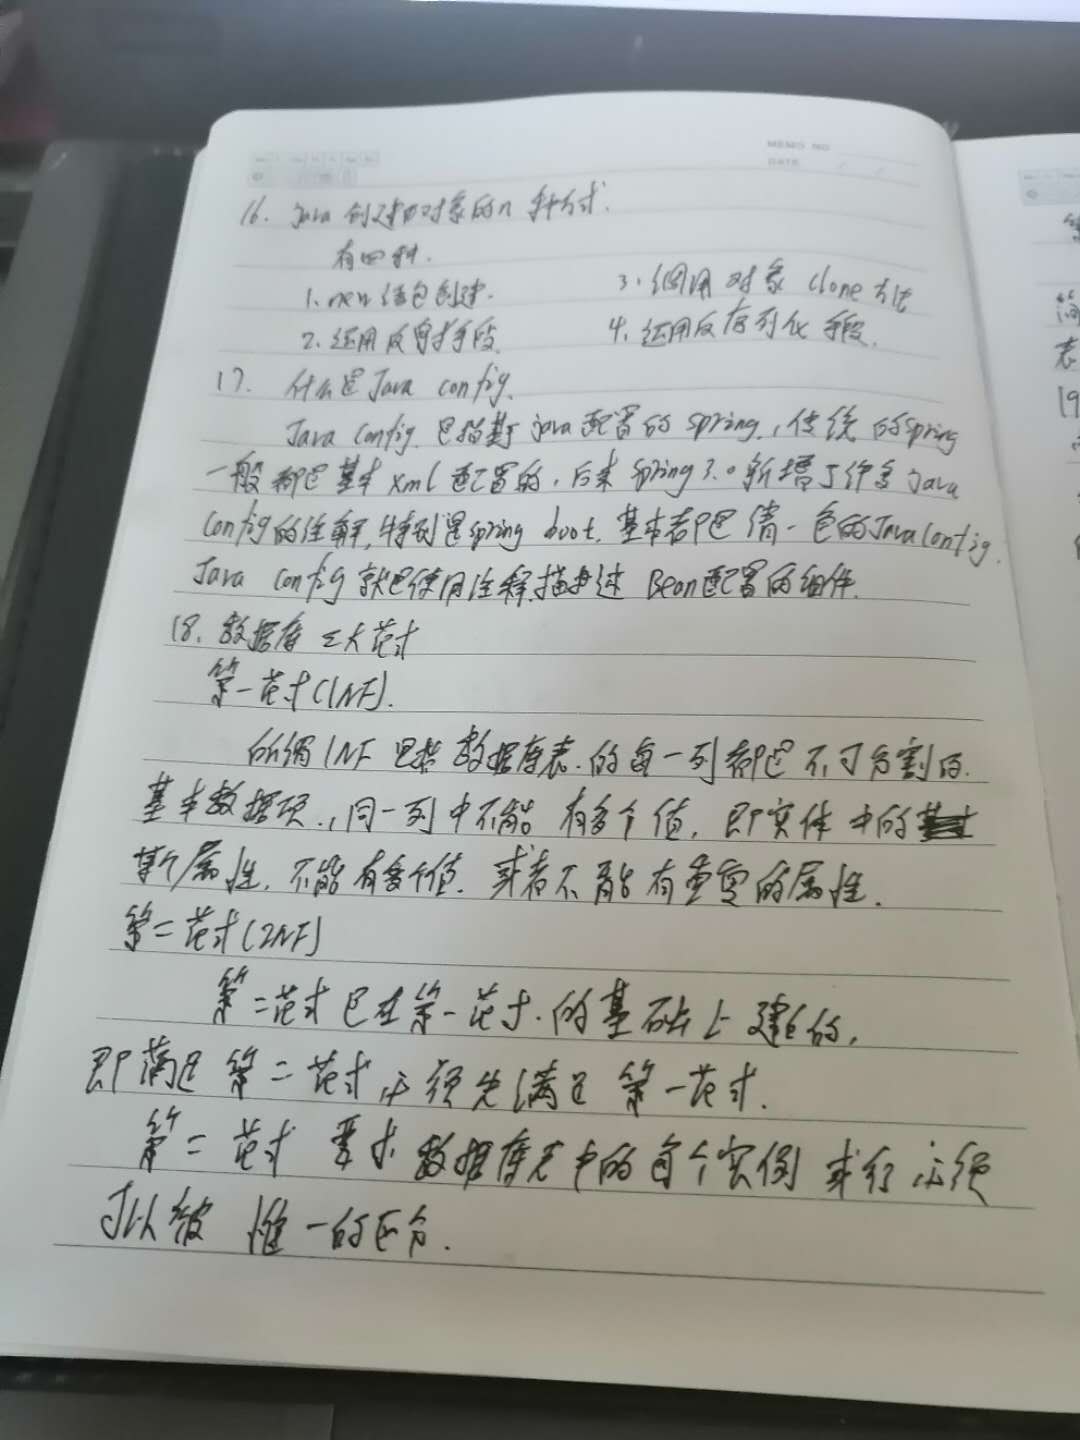 MEMO NO.
DATE
16. Java 创建对象的n种方式.
有四种.
1. new 语句创建. 3. 调用对象 clone 方法
2. 运用反射手段. 4. 运用反序列化手段.
17. 什么是Java config.
Java config 是指基于 java 配置的 spring, 传统的spring
一般都是基本 xml 配置的, 后来 spring3.0 新增了许多 Java
config的注解, 特别是spring boot, 基本都是清一色的Javaconfig.
Java config 就是使用注释描述 Bean配置的组件.
18. 数据库三大范式
第一范式(1NF).
所谓1NF是指数据库表.的每一列都是不可分割的.
基本数据项., 同一列中不能有多个值, 即实体中的
某个属性, 不能有多个值. 或者不能有重复的属性.
第二范式(2NF)
第二范式是在第一范式.的基础上建的,
即满足第二范式必须先满足第一范式.
第二范式要求数据库表中的每个实例或行必须
可以被惟一的区分.
19
表